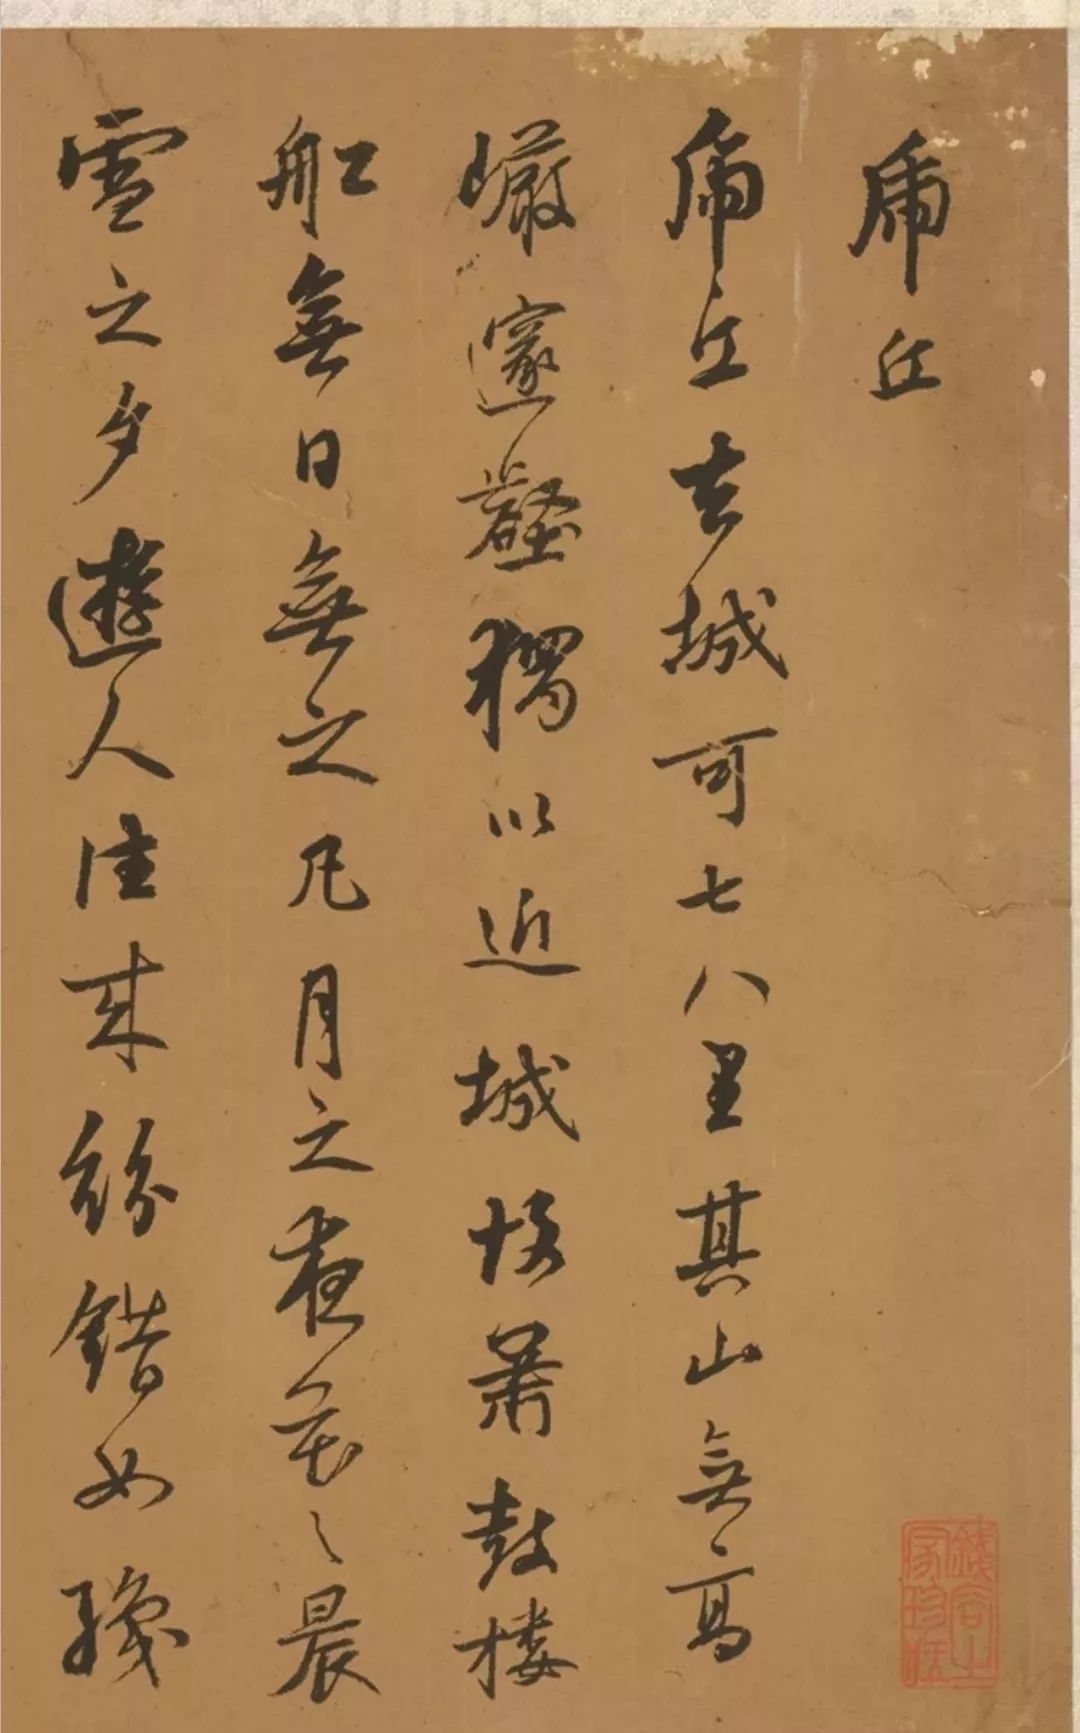 虎丘
虎丘去城可七八里其山無高
巖邃壑獨以近城故蕭鼓樓
船無日無之凡月之夜花之晨
雪之夕遊人往来紛錯如